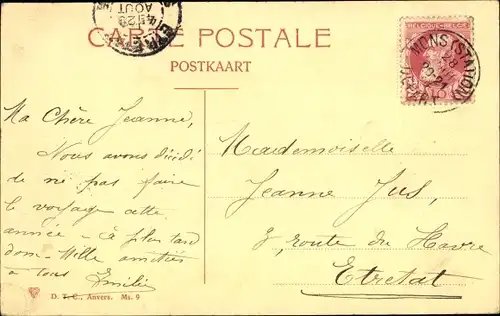 CARTE POSTALE
POSTKAART
BELGIQUE · BELGIË
MONS (STATION)
AOUT
Ma Chère Jeanne,
Nous avons décidé
de ne pas faire
le voyage cette
année - à plus tard
donc - Mille amitiés
à tous Emilie
Mademoiselle
Jeanne
, route du Havre
Etretat
D. T. C., Anvers. Ms. 9